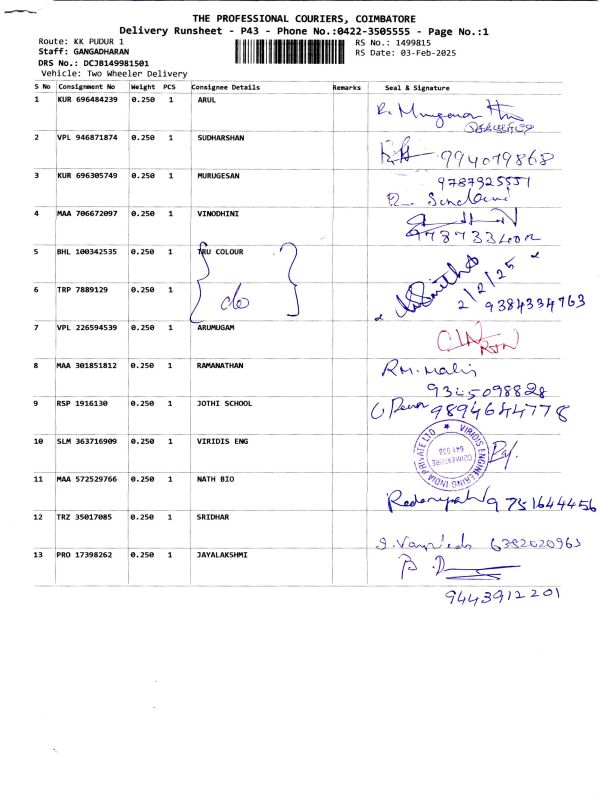 THE PROFESSIONAL COURIERS, COIMBATORE
Delivery Runsheet - P43 - Phone No.:0422-3505555 - Page No.:1
Route: KK PUDUR 1
RS No.: 1499815
Staff: GANGADHARAN
RS Date: 03-Feb-2025
DRS No.: DCJB149981501
Vehicle: Two Wheeler Delivery
S No Consignment No Weight PCS Consignee Details Remarks Seal & Signature
1 KUR 696484239 0.250 1 ARUL
2 VPL 946871874 0.250 1 SUDHARSHAN
994079868
3 KUR 696305749 0.250 1 MURUGESAN
9787925551
4 MAA 706672097 0.250 1 VINODHINI
5 BHL 100342535 0.250 1 TRU COLOUR
do
2/2/25
6 TRP 7889129 0.250 1
9384334763
7 VPL 226594539 0.250 1 ARUMUGAM
8 MAA 301851812 0.250 1 RAMANATHAN
RM. Malis
9 RSP 1916130 0.250 1 JOTHI SCHOOL
9894644778
10 SLM 363716909 0.250 1 VIRIDIS ENG
VIRIDIS ENGINEERING INDIA PRIVATE LTD
COIMBATORE
641 038
11 MAA 572529766 0.250 1 NATH BIO
9751644456
12 TRZ 35017085 0.250 1 SRIDHAR
6382020963
13 PRO 17398262 0.250 1 JAYALAKSHMI
9443912201